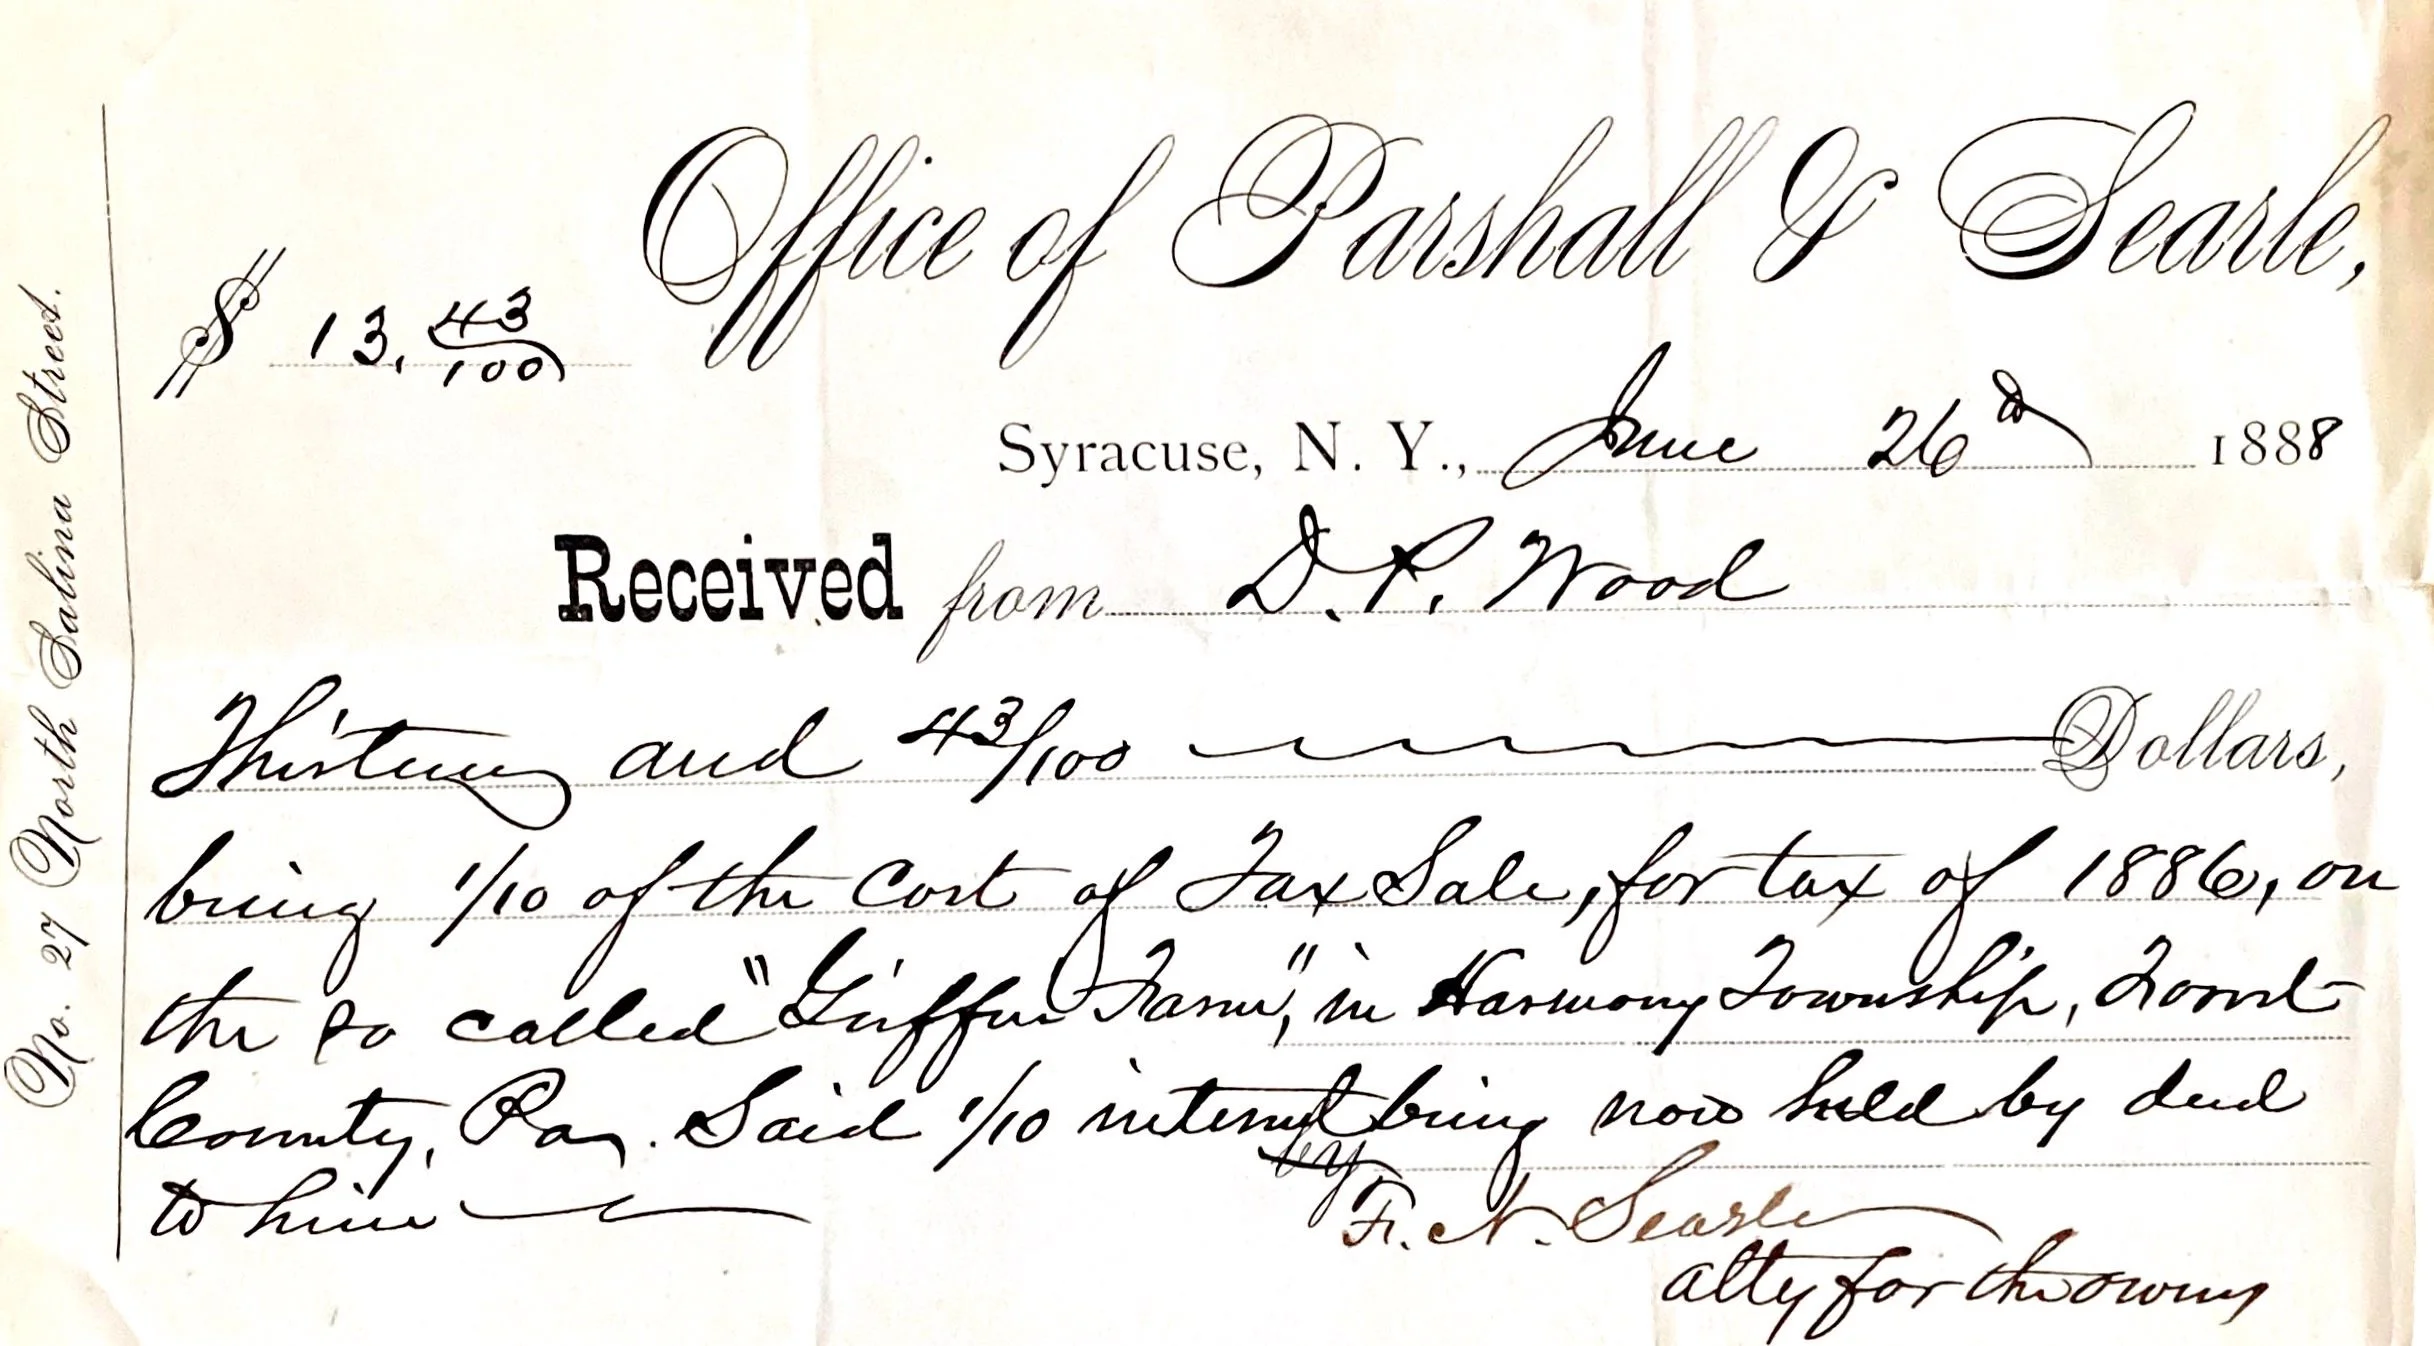 No. 27 North Salina Street.
Office of Parshall & Searle,
$ 13, 43/100
Syracuse, N. Y., June 26th 1888
Received from D. P. Wood
Thirteen and 43/100 Dollars,
being 1/10 of the Cost of Tax Sale, for tax of 1886, on
the so called "Griffin Farm", in Harmony Township,
County, Pa. Said 1/10 interest being now held by deed
by
to him
F. N. Searle
atty for the owners